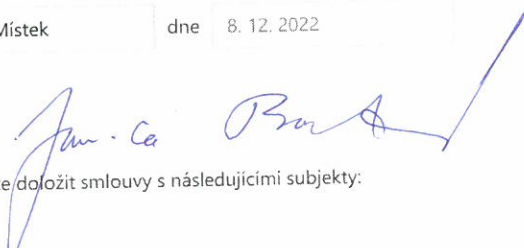 Místek dne 8. 12. 2022
te doložit smlouvy s následujícími subjekty: